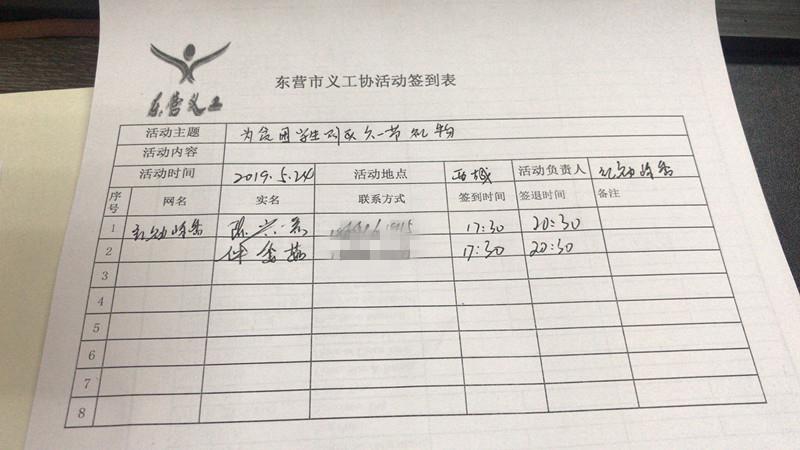 东营义工
东营市义工协活动签到表
活动主题 为贫困学生 六一节礼物
活动内容
活动时间 2019.5.24 活动地点 西城 活动负责人
序号 网名 实名 联系方式 签到时间 签退时间 备注
1 17:30 20:30
2 17:30 20:30
3
4
5
6
7
8